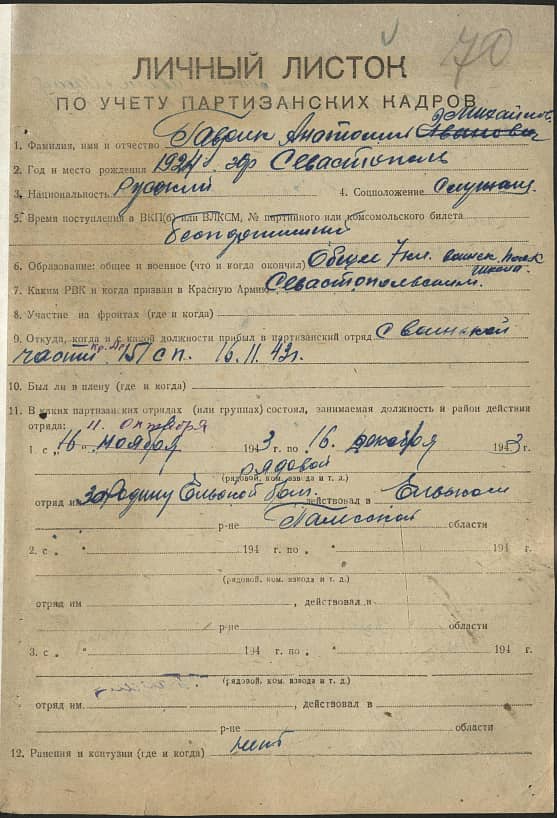 70
ЛИЧНЫЙ ЛИСТОК
ПО УЧЕТУ ПАРТИЗАНСКИХ КАДРОВ
Михайлов.
1. Фамилия, имя и отчество Гаврик Анатолий Иванович
2. Год и место рождения 1924 гор Севастополь
3. Национальность Русский 4. Соцположение Служащ.
5. Время поступления в ВКП(б) или ВЛКСМ, № партийного или комсомольского билета
беспартийный
6. Образование: общее и военное (что и когда окончил) Общее 7 кл. воинск. полк
школа
7. Каким РВК и когда призван в Красную Армию Севастопольским
8. Участие на фронтах (где и когда)
9. Откуда, когда и с какой должности прибыл в партизанский отряд с воинской
части Кр. Ар 15 с п. 16. 11. 43 г.
10. Был ли в плену (где и когда)
11. В каких партизанских отрядах (или группах) состоял, занимаемая должность и район действия
отряда: 11. октября
1. с „16 " ноября 1943 г. по „ 16. декабря 1943 г.
рядовой
(рядовой, ком. взвода и т. д.)
отряд им за Родину Ельской бриг. , действовал в Ельском
р-не Полесской области
2. с „ " 194 г. по „ " 194 г.
(рядовой, ком. взвода и т. д.)
отряд им , действовал в
р-не области
3. с „ " 194 г. по „ " 194 г.
(рядовой, ком. взвода и т. д.)
отряд им. , действовал в
р-не области
12. Ранения и контузии (где и когда) нет